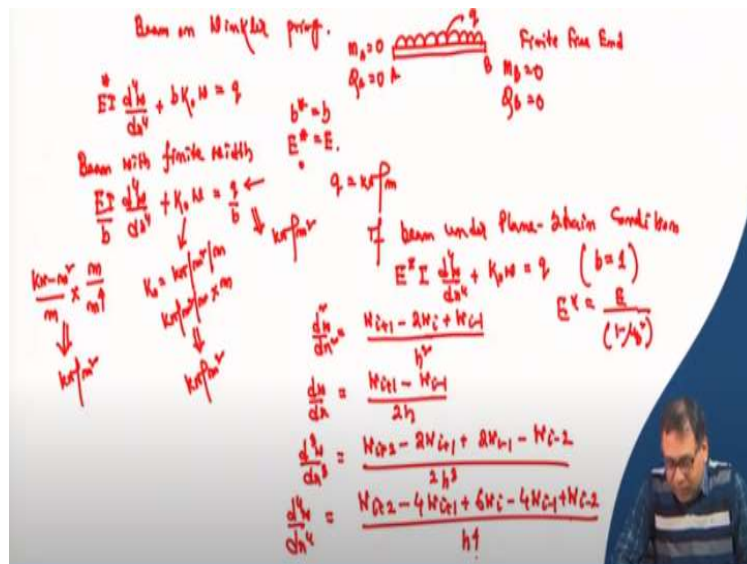 Beam on Winkler pring.
q
M_A=0
Q_A=0 A
B
Finite Free End
M_B=0
Q_B=0
E*I d⁴w/dx⁴ + bK₀w = q
b* = b
E* = E.
Beam with finite width
EI/b d⁴w/dx⁴ + K₀w = q/b ←
kn/m²
q = kn/m
kn-m²/m × m/m⁴
kn/m²
K₀ = kn/m²/m
kn/m²/m × m
kn/m²
If beam under Plane-strain Condition
E*I d⁴w/dx⁴ + K₀w = q (b=1)
E* = E/(1-μ²)
d²w/dx² = (w_{i+1} - 2w_i + w_{i-1})/h²
dw/dx = (w_{i+1} - w_{i-1})/2h
d³w/dx³ = (w_{i+2} - 2w_{i+1} + 2w_{i-1} - w_{i-2})/2h³
d⁴w/dx⁴ = (w_{i+2} - 4w_{i+1} + 6w_i - 4w_{i-1} + w_{i-2})/h⁴